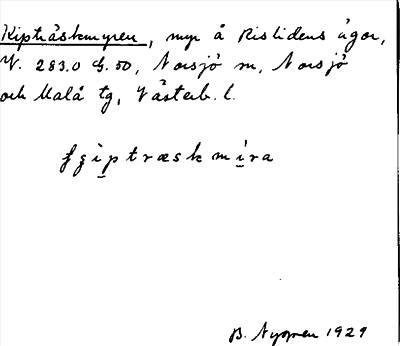 Kipträskmyren, myr å Rislidens ägor,
V. 283.0 G. 50, Norsjö sn, Norsjö
och Malå tg, Västerb. l.
ʂip træsk mira
B. Nygren 1929